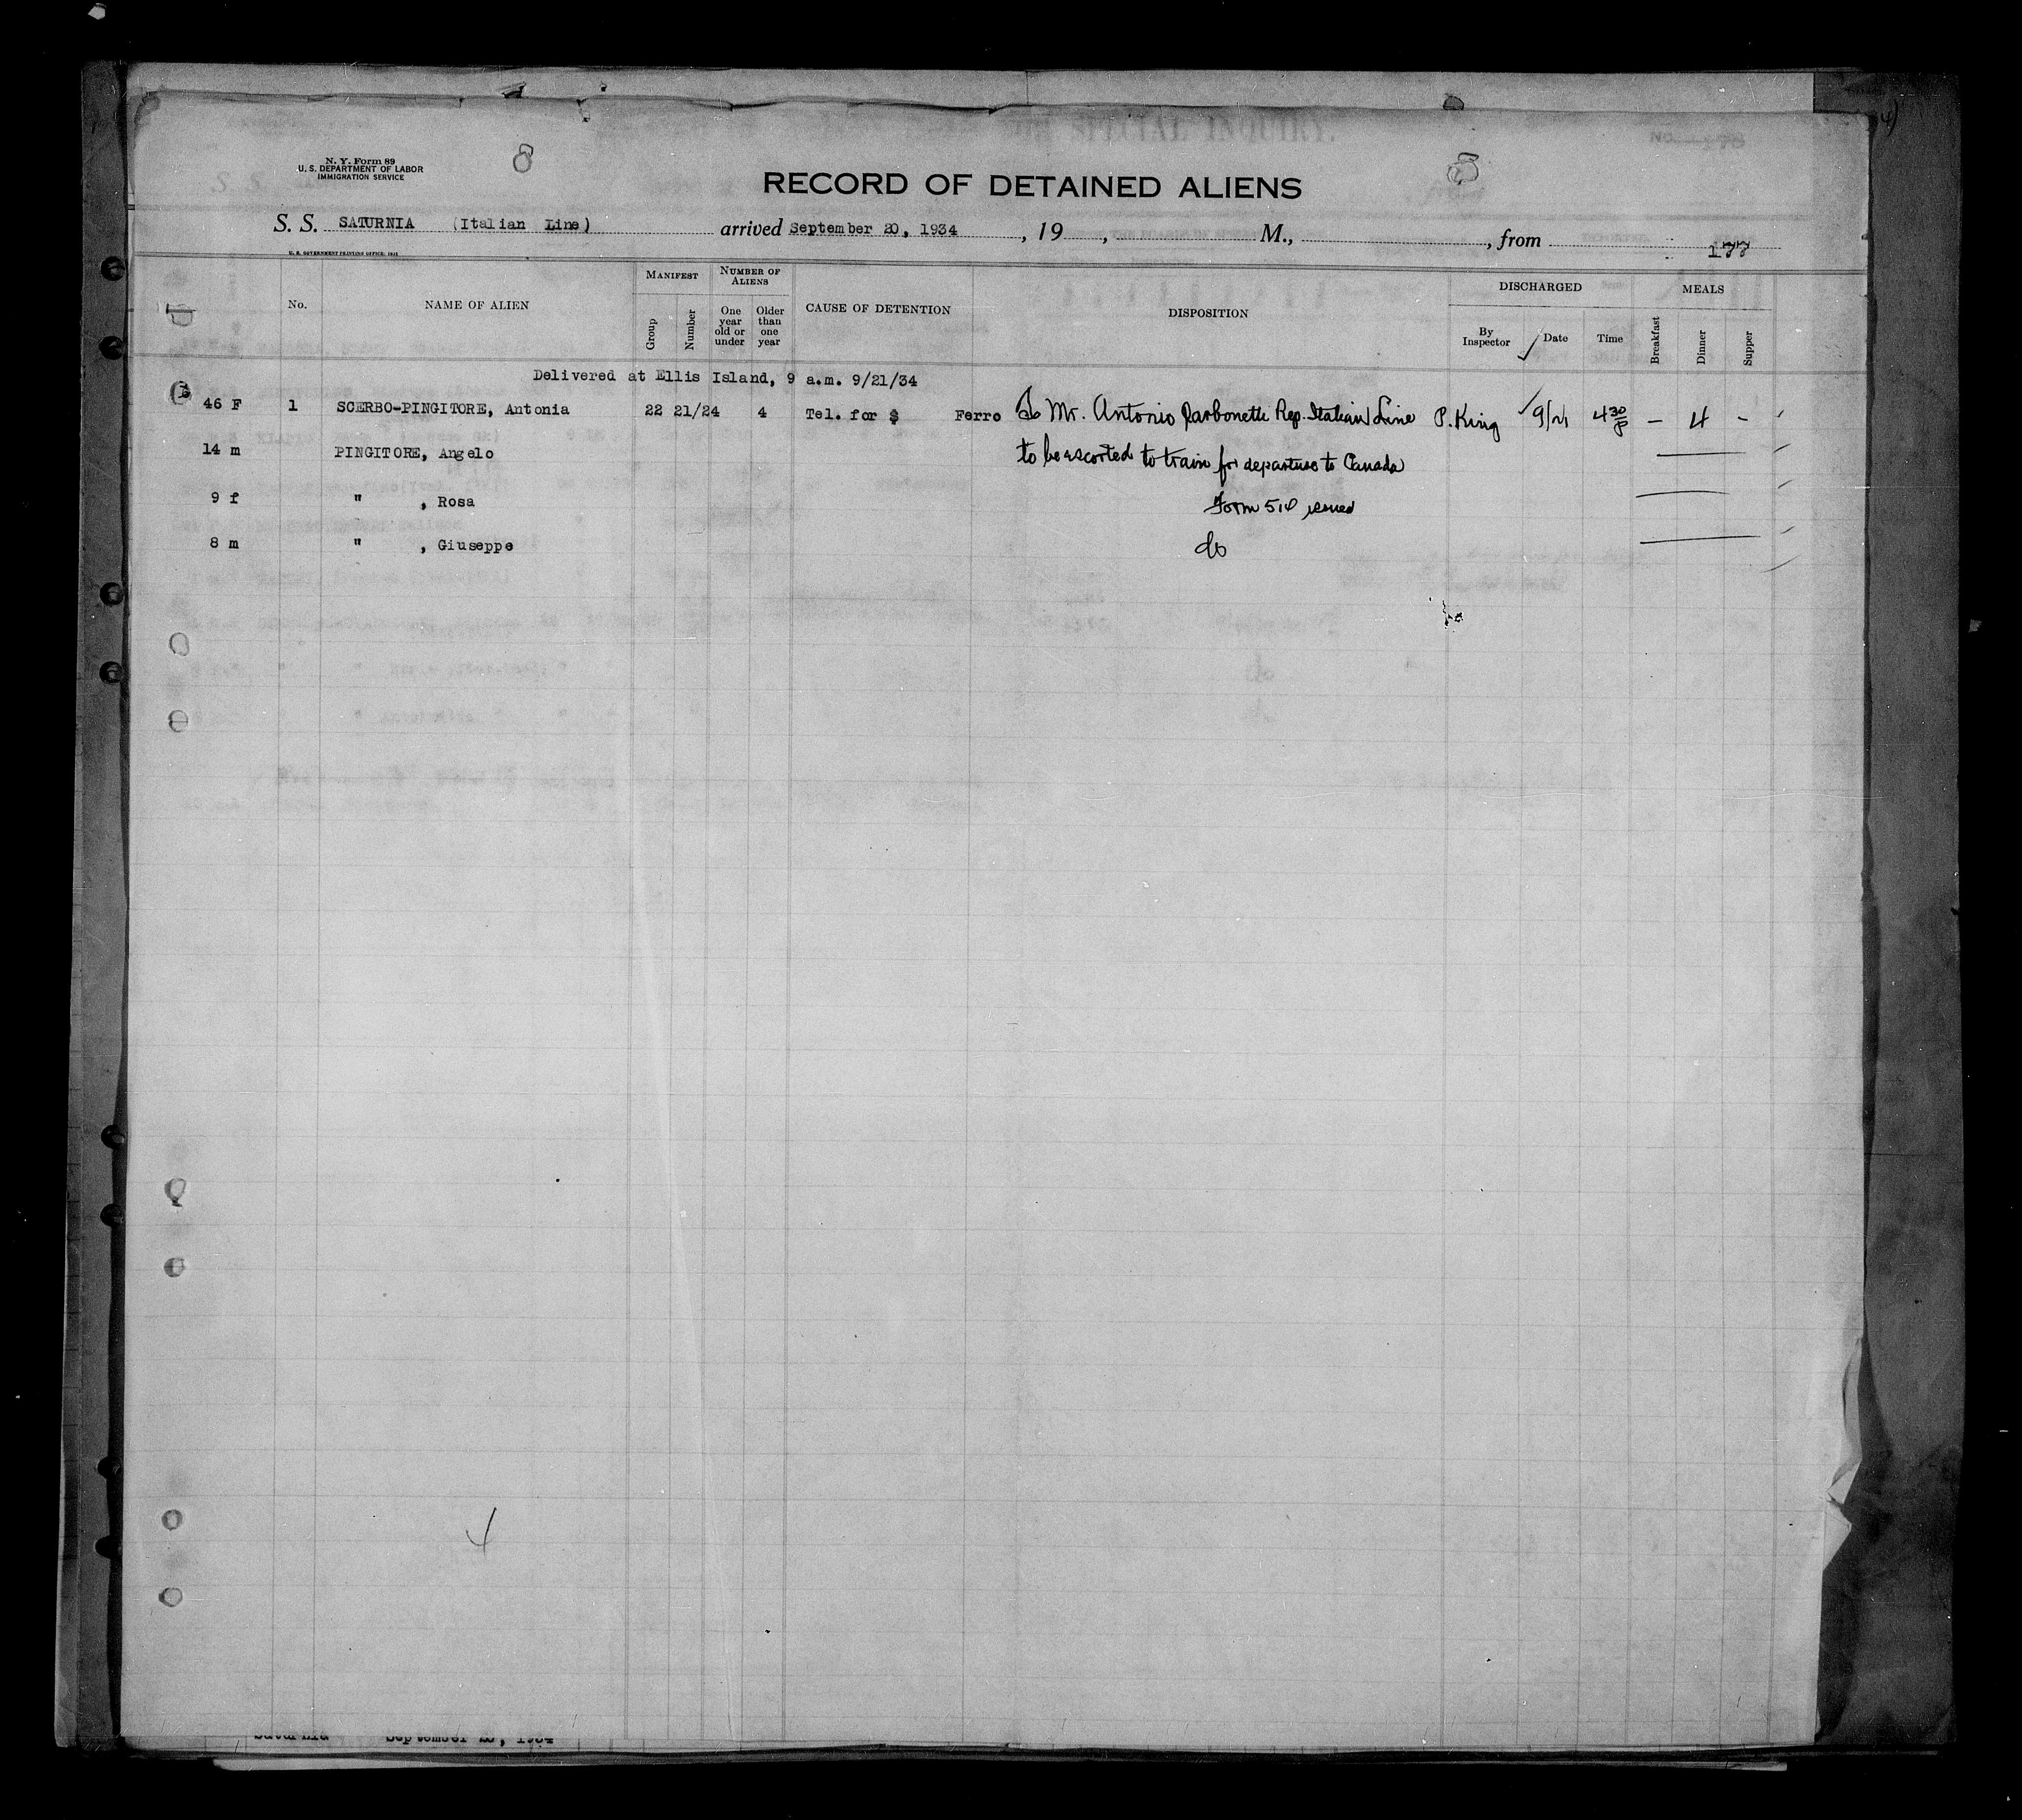 N. Y. Form 89
U. S. DEPARTMENT OF LABOR
IMMIGRATION SERVICE
RECORD OF DETAINED ALIENS
S. S. SATURNIA (Italian Line) arrived September 20, 1934, 19 , M., , from
177
U. S. GOVERNMENT PRINTING OFFICE: 1931
No. NAME OF ALIEN MANIFEST Group Number NUMBER OF ALIENS One year old or under Older than one year CAUSE OF DETENTION DISPOSITION DISCHARGED By Inspector Date Time MEALS Breakfast Dinner Supper
Delivered at Ellis Island, 9 a.m. 9/21/34
46 F 1 SCERBO-PINGITORE, Antonia 22 21/24 4 Tel. for $ Ferro To Mr. Antonio Rep. Italian Line P. King 9/21 4 30 P — 4 -
14 m PINGITORE, Angelo to be escorted to train for departure to Canada
9 f " , Rosa Form 514 issued
8 m " , Giuseppe do
4
Saturnia September 20, 1934